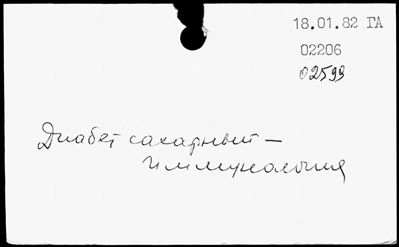 18.01.82 ГА
02206
02599
Диабет сахарный –
Иммунология